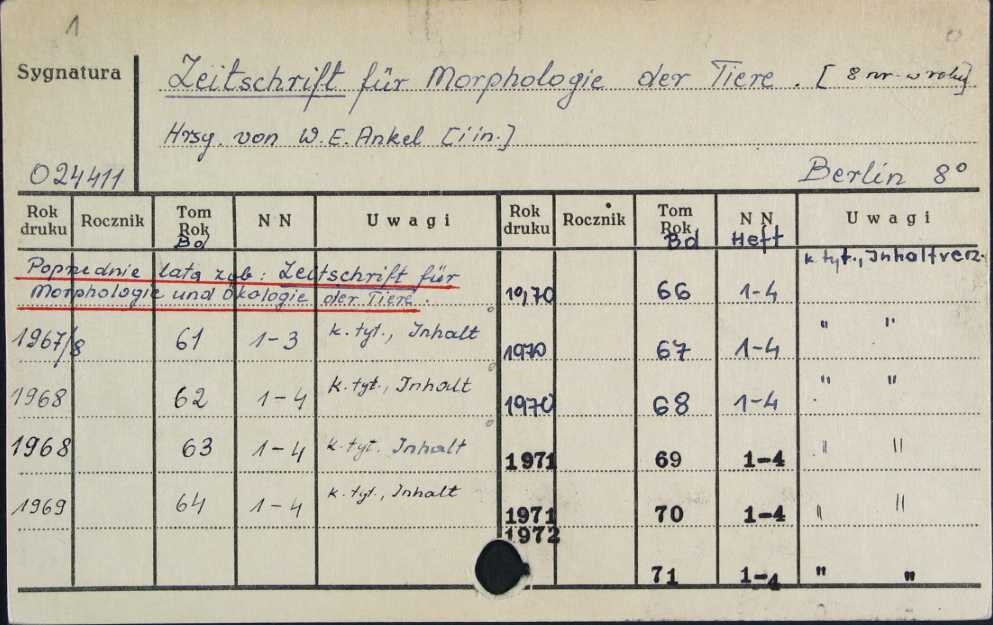 1
Sygnatura
Zeitschrift für Morphologie der Tiere. [8 nr. w roku]
Hrsg. von W. E. Ankel [i in.]
024411
Berlin 8°
Rok druku Rocznik Tom Rok Bd NN Uwagi Rok druku Rocznik Tom Rok Bd NN Heft Uwagi
Poprzednie lata zob: Zeitschrift für
Morphologie und Ökologie der Tiere.
1967/8 61 1-3 k. tyt., Inhalt
1968 62 1-4 k. tyt., Inhalt
1968 63 1-4 k. tyt. Inhalt
1969 64 1-4 k. tyt., Inhalt
70 66 1-4 k. tyt., Inhaltverz.
1970 67 1-4 " "
1970 68 1-4 " "
1971 69 1-4 " "
1971 70 1-4 " "
1972
71 1-4 " "